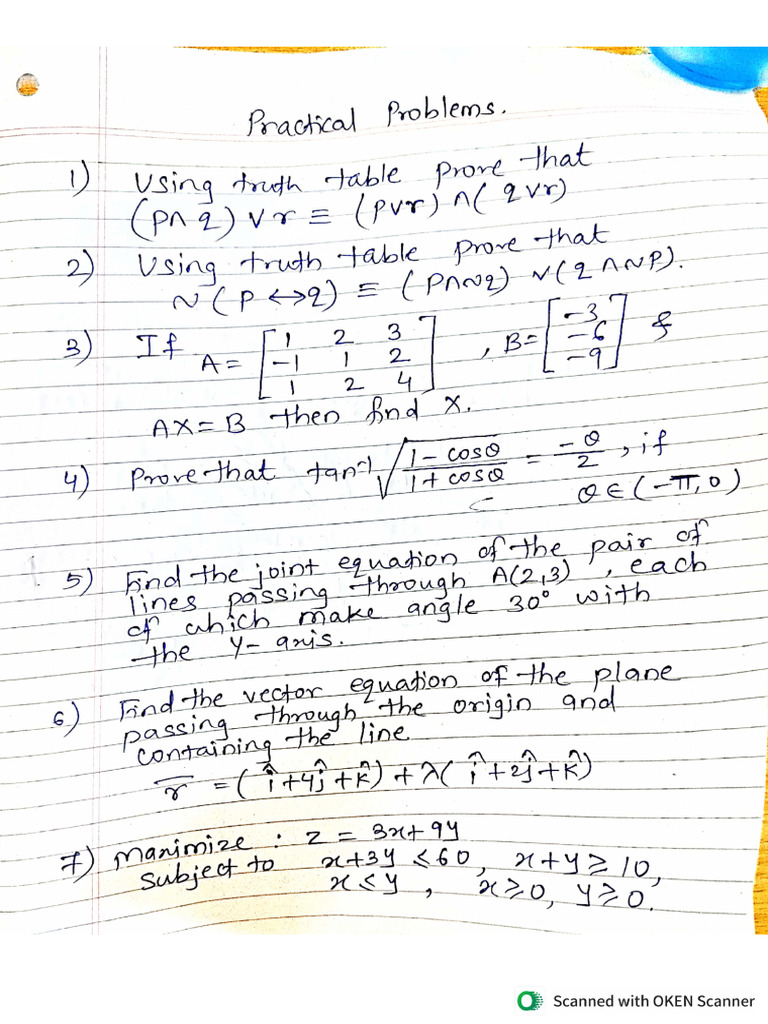 Practical Problems.
1) Using truth table prove that
(p∧q)∨r ≡ (p∨r)∧(q∨r)
2) Using truth table prove that
~(p↔q) ≡ (p∧~q)∨(q∧~p).
3) If A = [1 2 3; -1 1 2; 1 2 4], B = [-3; -6; -9] &
AX = B then find X.
4) Prove that tan⁻¹ √((1-cosθ)/(1+cosθ)) = -θ/2, if
θ ∈ (-π, 0)
5) Find the joint equation of the pair of
lines passing through A(2,3), each
of which make angle 30° with
the Y-axis.
6) Find the vector equation of the plane
passing through the origin and
containing the line
r̄ = (î+4ĵ+k̂)+λ(î+2ĵ+k̂)
7) Maximize : z = 3x+9y
subject to x+3y ≤ 60, x+y ≥ 10,
x ≤ y, x ≥ 0, y ≥ 0.
Scanned with OKEN Scanner